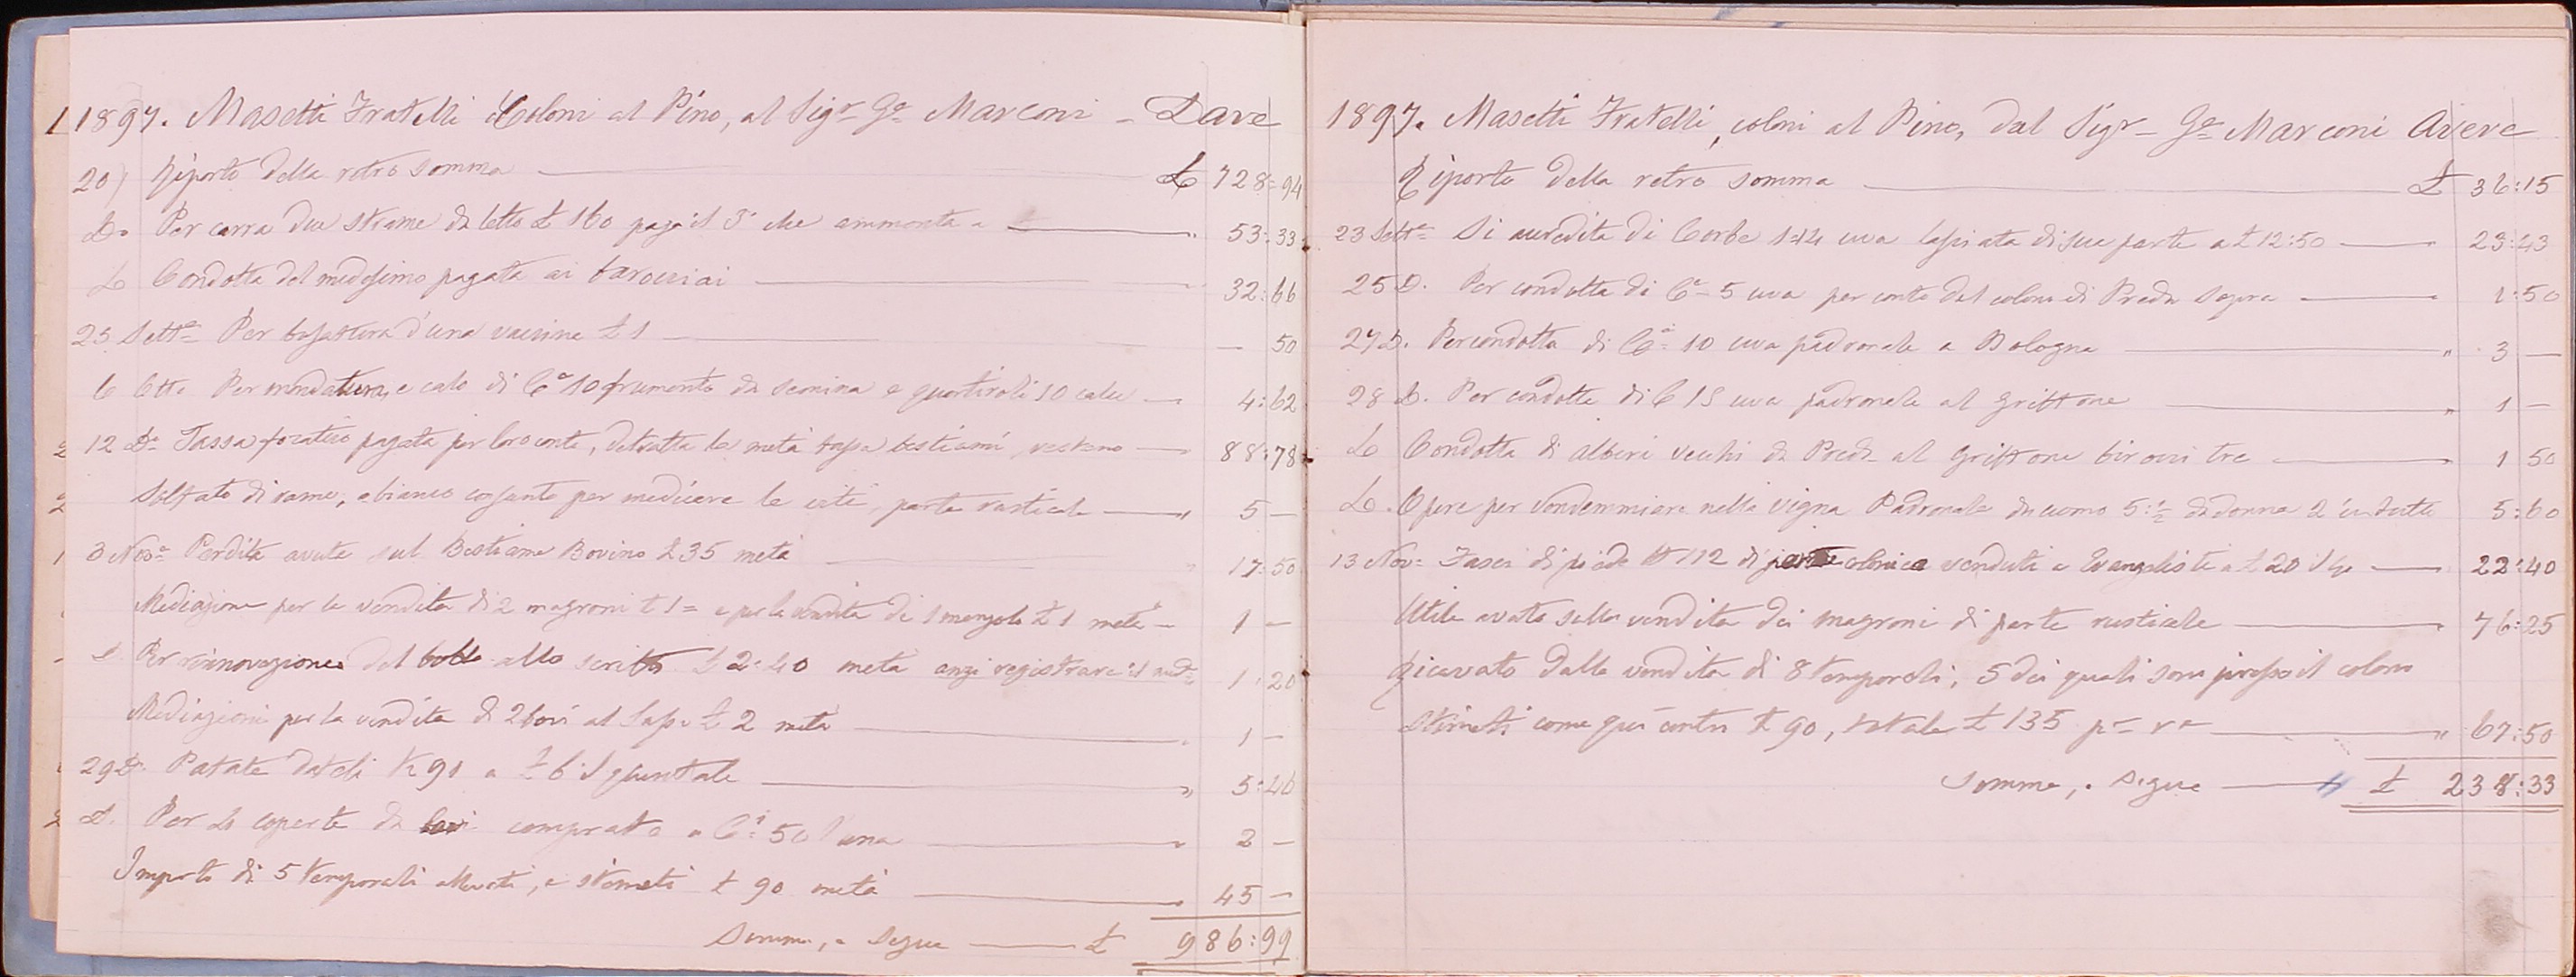 1897. Masetti Fratelli Coloni al Pino, al Sigr Ge Marconi - Dare
20) Riporto della retro somma £ 728=94
Do Per carra due strame da letto £ 160 paga il 3° che ammonta a 53:33
Do Condotta del medesimo pagata ai barocciai 32:66
25 Sette Per £ 1 50
6 Otto Per mondatura e calo di Ca 10 frumento da semina e quartiroli 10 calu 4:62
12 Do Tassa focatico pagata per loro conto, detratta la metà tassa bestiami, restano 88:78
Solfato di rame, e bianco per medicare le viti, parte rusticale 5 —
3 Nove Perdita avuta sul Bestiame Bovino £ 35 metà 17:50
Mediazione per la vendita di 2 magroni £ 1= e per la vendita di 1 manzolo £ 1 metà — 1 —
D. Per rinnovazione del bollo allo scritto £ 2:40 metà anzi registrare il 1:20
Mediazioni per la vendita di 2 bovi al £ 2 metà 1 —
29 D. Patate dateli K 91 a £ 6 il quintale 5:46
D. Per coperte da bovi comprate a Ci 50 l'una 2 —
Importo di 5 temporali allevati, e stimati £ 90 metà 45 —
Somma, e segue £ 986:99
1897. Masetti Fratelli, coloni al Pino, dal Sigr Ge Marconi Avere
Riporto della retro somma £ 36:15
23 Sette Si accredita di Corbe uva lasciata di sue parte a £ 12:50 23:43
25 D. Per condotta di Ce 5 uva per conto del colono di Preda Sopra 1:50
27 D. Per condotta di Ce 10 uva padronale a Bologna " 3 —
28 D. Per condotta di C 15 uva padronale al Griffone " 1 —
Do Condotta di alberi vecchi da Preda al Griffone birocci tre " 1 50
Do. Opere per vendemmiare nella vigna Padronale da uomo 5:½ da donna 2 in tutto 5:60
13 Nov: Fasci di piede N 112 di parte colonica venduti a Evangelisti a £ 20 il % 22:40
Utile avuto sulla vendita dei magroni di parte rusticale " 76:25
Ricavato dalla vendita di 8 temporali, 5 dei quali sono presso il colono
stimati come quì contro £ 90, totale £ 135 pe re " 67:50
Somma, e segue £ 238:33